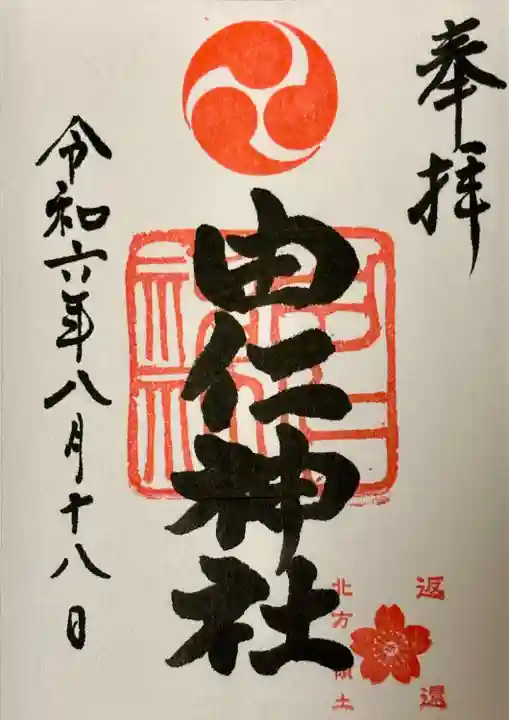 奉拝
由仁神社
令和六年八月十八日
返還
北方領土